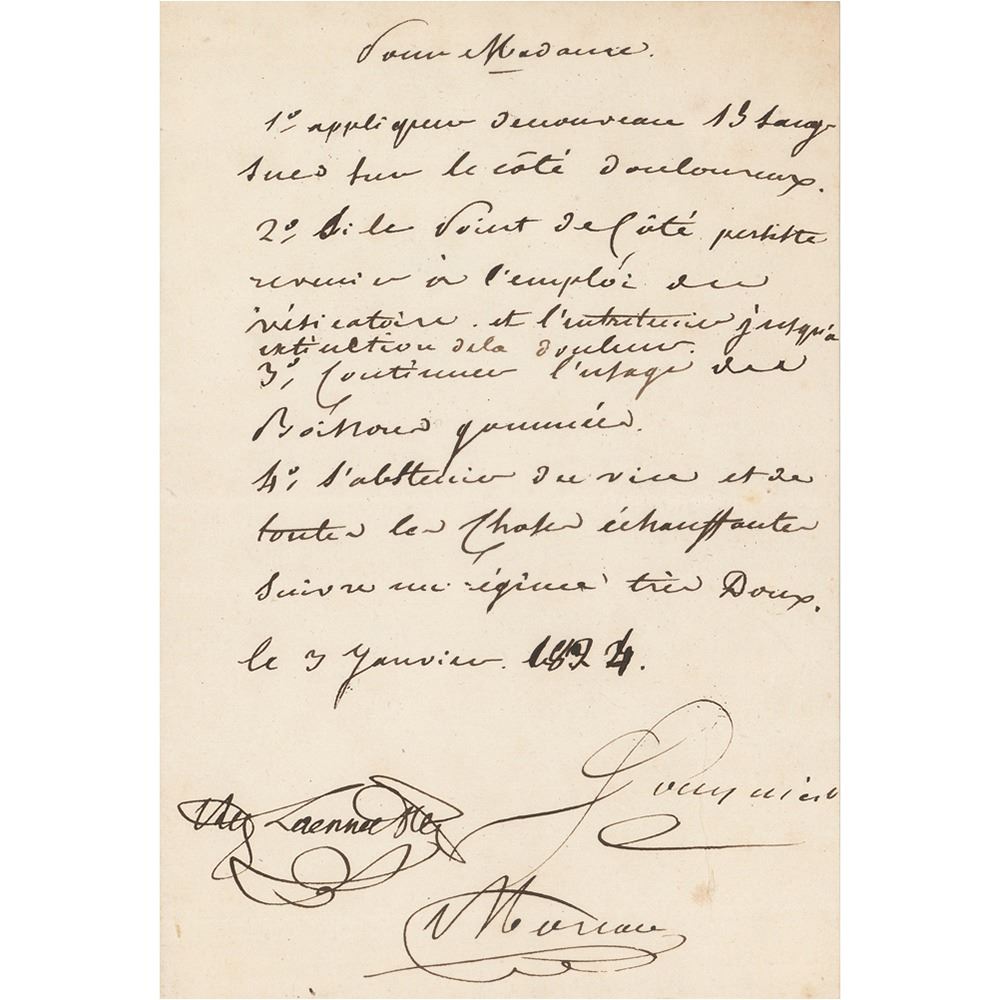 Pour Madame.
1º appliquer denouveau 15 sang
sues sur le côté douloureux.
2º, Si le Point de Côté persiste
revenir à l'emploi des
vésicatoire. et l'entretenir jusqu'a
extinction dela douleur.
3º, Continuer l'usage des
Boissons gommées.
4º, s'abstenir du vin et de
toutes les Choses échauffantes
suivre un régime très Doux.
le 3 Janvier. 1824.
Fouquier
Laennec
Moreau